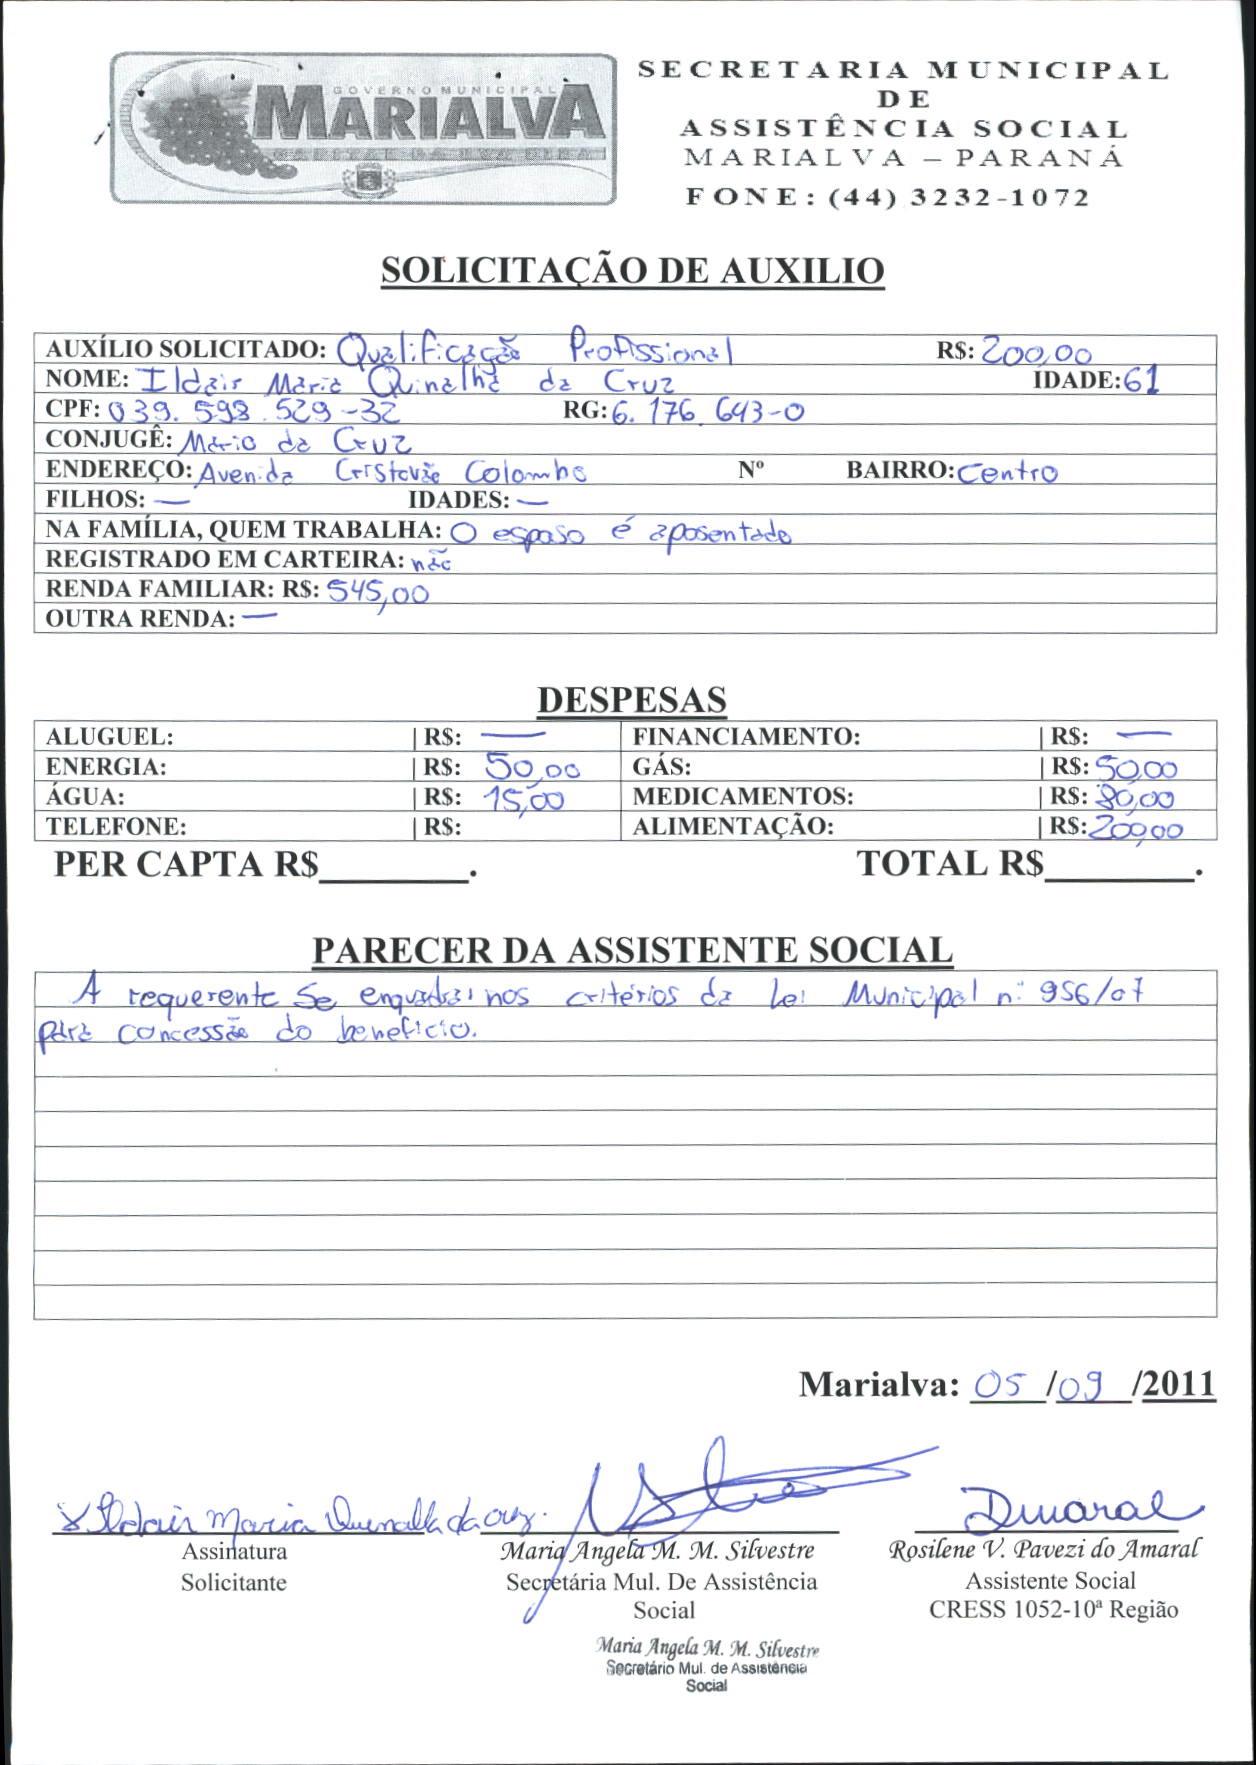 GOVERNO MUNICIPAL
MARIALVA
CAPITAL DA UVA FINA
SECRETARIA MUNICIPAL
DE
ASSISTÊNCIA SOCIAL
MARIALVA – PARANÁ
FONE: (44) 3232-1072
SOLICITAÇÃO DE AUXILIO
AUXÍLIO SOLICITADO: Qualificação Profissional R$: 200,00
NOME: Ildair Maria Quinalha da Cruz IDADE: 61
CPF: 039.598.529-32 RG: 6.176.643-0
CONJUGÊ: Mario da Cruz
ENDEREÇO: Avenida Cristovão Colombo Nº BAIRRO: Centro
FILHOS: — IDADES: —
NA FAMÍLIA, QUEM TRABALHA: O esposo é aposentado
REGISTRADO EM CARTEIRA: não
RENDA FAMILIAR: R$: 545,00
OUTRA RENDA: —
DESPESAS
ALUGUEL: | R$: — FINANCIAMENTO: | R$: —
ENERGIA: | R$: 50,00 GÁS: | R$: 50,00
ÁGUA: | R$: 15,00 MEDICAMENTOS: | R$: 80,00
TELEFONE: | R$: ALIMENTAÇÃO: | R$: 200,00
PER CAPTA R$________. TOTAL R$________.
PARECER DA ASSISTENTE SOCIAL
A requerente se enquadra nos critérios da Lei Municipal nº 956/07
para concessão do benefício.
Marialva: 05 /09 /2011
x Ildair Maria Quenalha da cruz. Dmaral
Assinatura Maria Angela M. M. Silvestre Rosilene V. Pavezi do Amaral
Solicitante Secretária Mul. De Assistência Assistente Social
Social CRESS 1052-10ª Região
Maria Angela M. M. Silvestre
Secretário Mul. de Assistência
Social